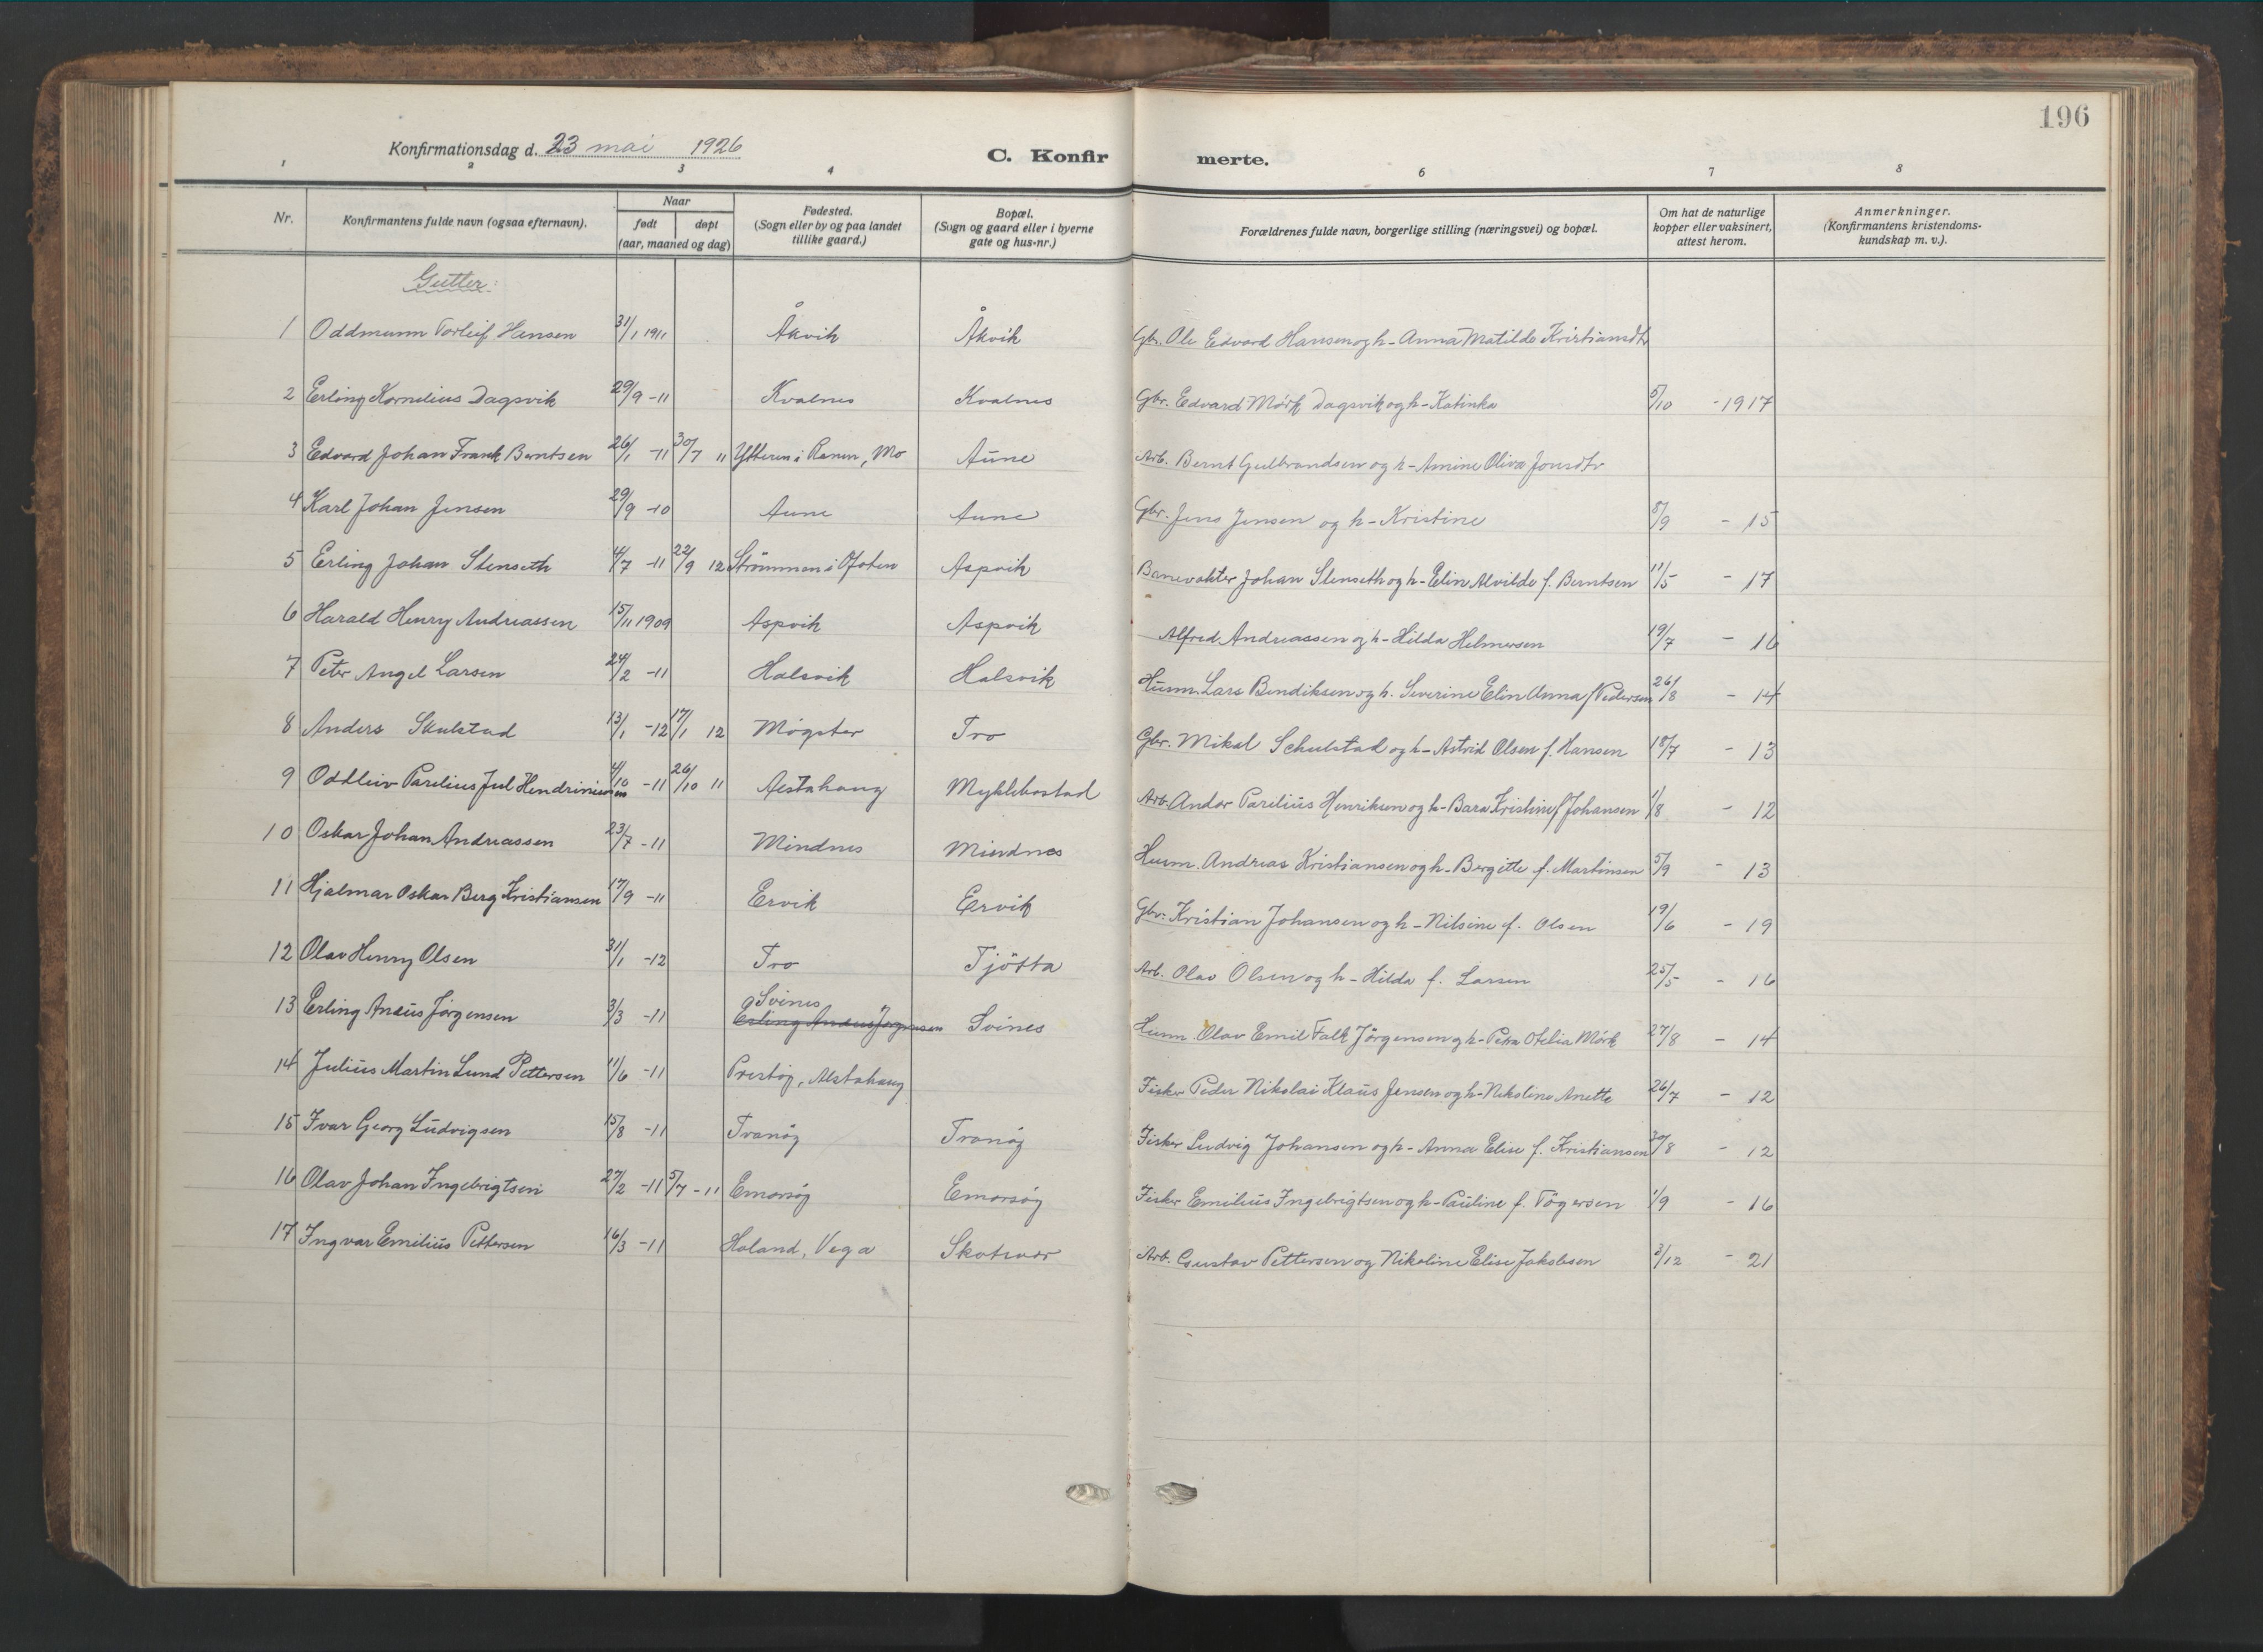 196
Konfirmationsdag d. 23 mai 1926
C. Konfirmerte.
1 2 3 4 6 7 8
Nr. Konfirmantens fulde navn (ogsaa efternavn). Naar født døpt (aar, maaned og dag) Fødested. (Sogn eller by og paa landet tillike gaard.) Bopæl. (Sogn og gaard eller i byerne gate og hus-nr.) Forældrenes fulde navn, borgerlige stilling (næringsvei) og bopæl. Om hat de naturlige kopper eller vaksinert, attest herom. Anmerkninger. (Konfirmantens kristendoms-kundskap m. v.).
Gutter:
1 Oddmunn Torleif Hansen 31/1 1911 Åkvik Åkvik Gbr. Ole Edvard Hansen og h- Anna Matilde Kristiansdtr
2 Erling Kornelius Dagsvik 29/9 -11 Kvalnes Kvalnes Gbr. Edvard Mörk Dagsvik og h- Katinka 5/10 -1917
3 Edvard Johan Frank Berntsen 26/1 -11 30/7 11 Ytteren i Ranen, Mo Aune Arb. Bernt Gulbrandsen og h- Amine Oliva Jonsdtr
4 Karl Johan Jensen 29/9 -10 Aune Aune Gbr. Jens Jensen og h- Kristine 8/9 - 15
5 Erling Johan Stenseth 4/7 -11 22/9 12 Strömmen i Ofoten Aspvik Banevokter Johan Stenseth og h- Elin Alvilde f. Berntsen 11/5 - 17
6 Harald Henry Andreassen 15/11 1909 Aspvik Aspvik Alfred Andreassen og h- Hilda Helmersen 19/7 - 16
7 Peter Angel Larsen 24/2 -11 Halsvik Halsvik Husm. Lars Bendiksen og h. Severine Elin Anna f Pedersen 26/8 - 14
8 Anders Skulstad 13/1 -12 17/1 12 Møgster Tro Gbr. Mikal Schulstad og h- Astrid Olsen f. Hansen 18/7 - 13
9 Oddleiv Parelius Jul Hendriniussen 4/10 -11 26/10 11 Alstahaug Myklebostad Arb. Andor Parelius Henriksen og h- Bara Kristine f Johansen 1/8 - 12
10 Oskar Johan Andreassen 23/7 -11 Mindnes Mindnes Husm. Andreas Kristiansen og h- Bergitte f. Martinsen 5/9 - 13
11 Hjalmar Oskar Berg Kristiansen 17/9 -11 Ervik Ervik Gbr. Kristian Johansen og h- Nilsine f. Olsen 19/6 - 19
12 Olav Henry Olsen 31/1 -12 Tro Tjötta Arb. Olav Olsen og h- Hilda f. Larsen 25/5 - 16
13 Erling Aneus Jörgensen 3/3 -11 Svines Erling Aneus Jörgensen Svines Husm. Olav Emil Falk Jörgensen og h- Petra Otelia Mörk 27/8 - 14
14 Julius Martin Lund Pettersen 11/6 -11 Prestøy, Alstahaug Fisker Peder Nikolai Klaus Jensen og h- Nikoline Anette 26/7 - 12
15 Ivar Georg Ludvigsen 15/8 -11 Tranøy Tranøy Fisker Ludvig Johansen og h- Anna Elise f. Kristiansen 30/8 - 12
16 Olav Johan Ingebrigtsen 27/2 -11 5/7 -11 Emarsøy Emarsøy Fisker Emilius Ingebrigtsen og h- Pauline f. Tögersen 1/9 - 16
17 Ingvar Emilius Pettersen 16/3 -11 Holand, Vega Skotsvær Arb. Gustav Pettersen og Nikoline Elise Jakobsen 3/12 - 21